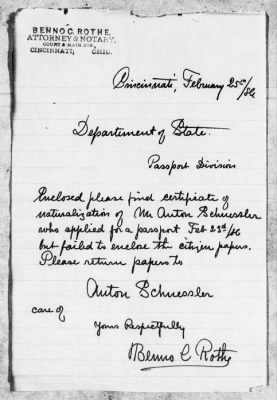 BENNO C. ROTHE,
ATTORNEY & NOTARY,
COURT & MAIN STR.,
CINCINNATI, OHIO.
Cincinnati, February 25th/86
Department of State.
Passport Division
Enclosed please find certificate of
naturalization of Mr Anton Schuessler
who applied for a passport Feb 23d/86
but failed to enclose the citizen papers.
Please return papers to
Anton Schuessler
care of
Yours Respectfully
Benno C Rothe